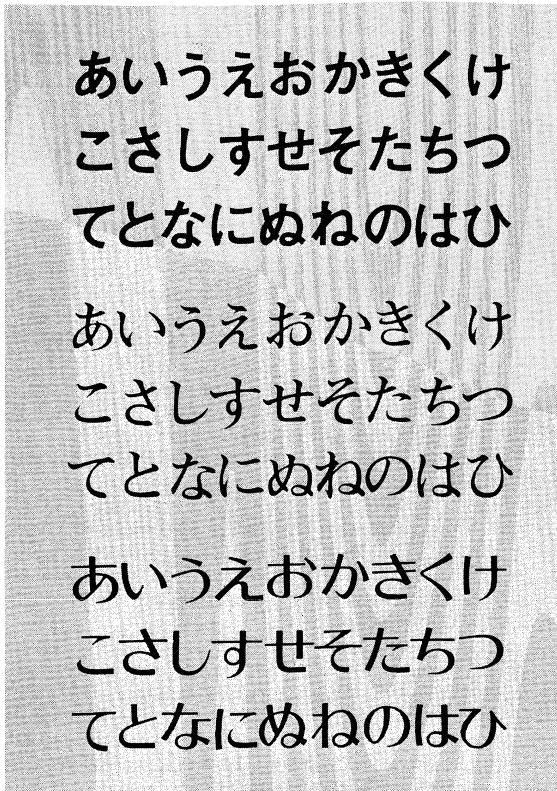 あいうえおかきくけ
こさしすせそたちつ
てとなにぬねのはひ
あいうえおかきくけ
こさしすせそたちつ
てとなにぬねのはひ
あいうえおかきくけ
こさしすせそたちつ
てとなにぬねのはひ